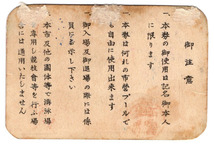 御注意
一、本券の御使用は記名御本人
に限ります
一、本券は何れの市営プールで
も自由に使用出来ます
一、御入場及御退場の際には係
員に御示し下さい
一、本市及他の団体等で游泳場
専用し競技会等を行ふ場
合には通用いたしません